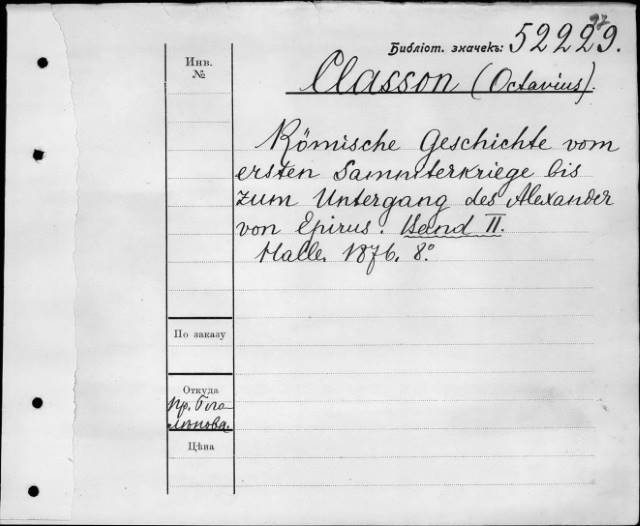 97
Библіот. значекъ: 52229.
Инв.
№
Classon (Octavius).
Römische Geschichte vom
ersten Sammterkriege bis
zum Untergang des Alexander
von Epirus. Band II.
Halle. 1876. 8.º
По заказу
Откуда
Пр.
Цѣна